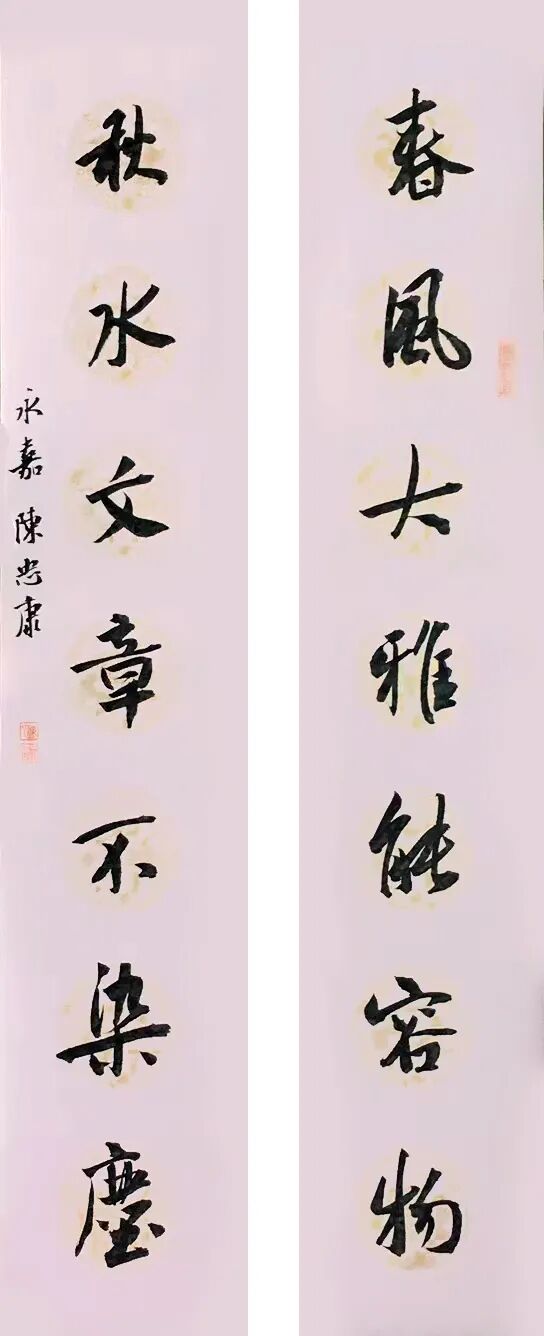 春風大雅能容物
秋水文章不染塵
永嘉陳忠康